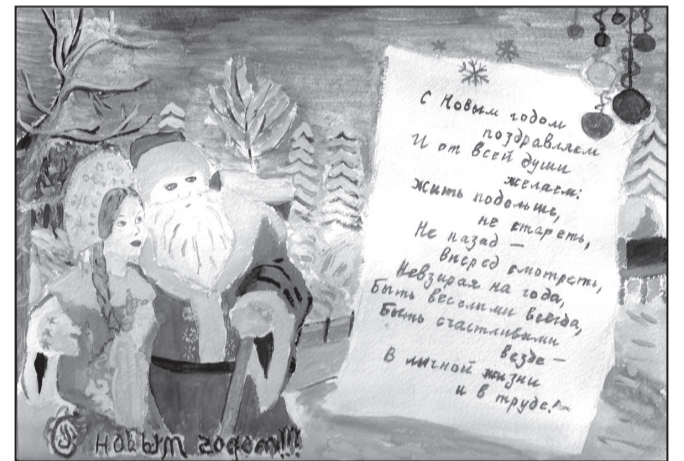 С Новым годом
поздравляем
И от всей души
желаем:
Жить подольше,
не стареть,
Не назад —
вперед смотреть,
Невзирая на года,
Быть веселыми всегда,
Быть счастливыми
везде —
В личной жизни
и в труде!
С НОВЫМ ГОДОМ!!!